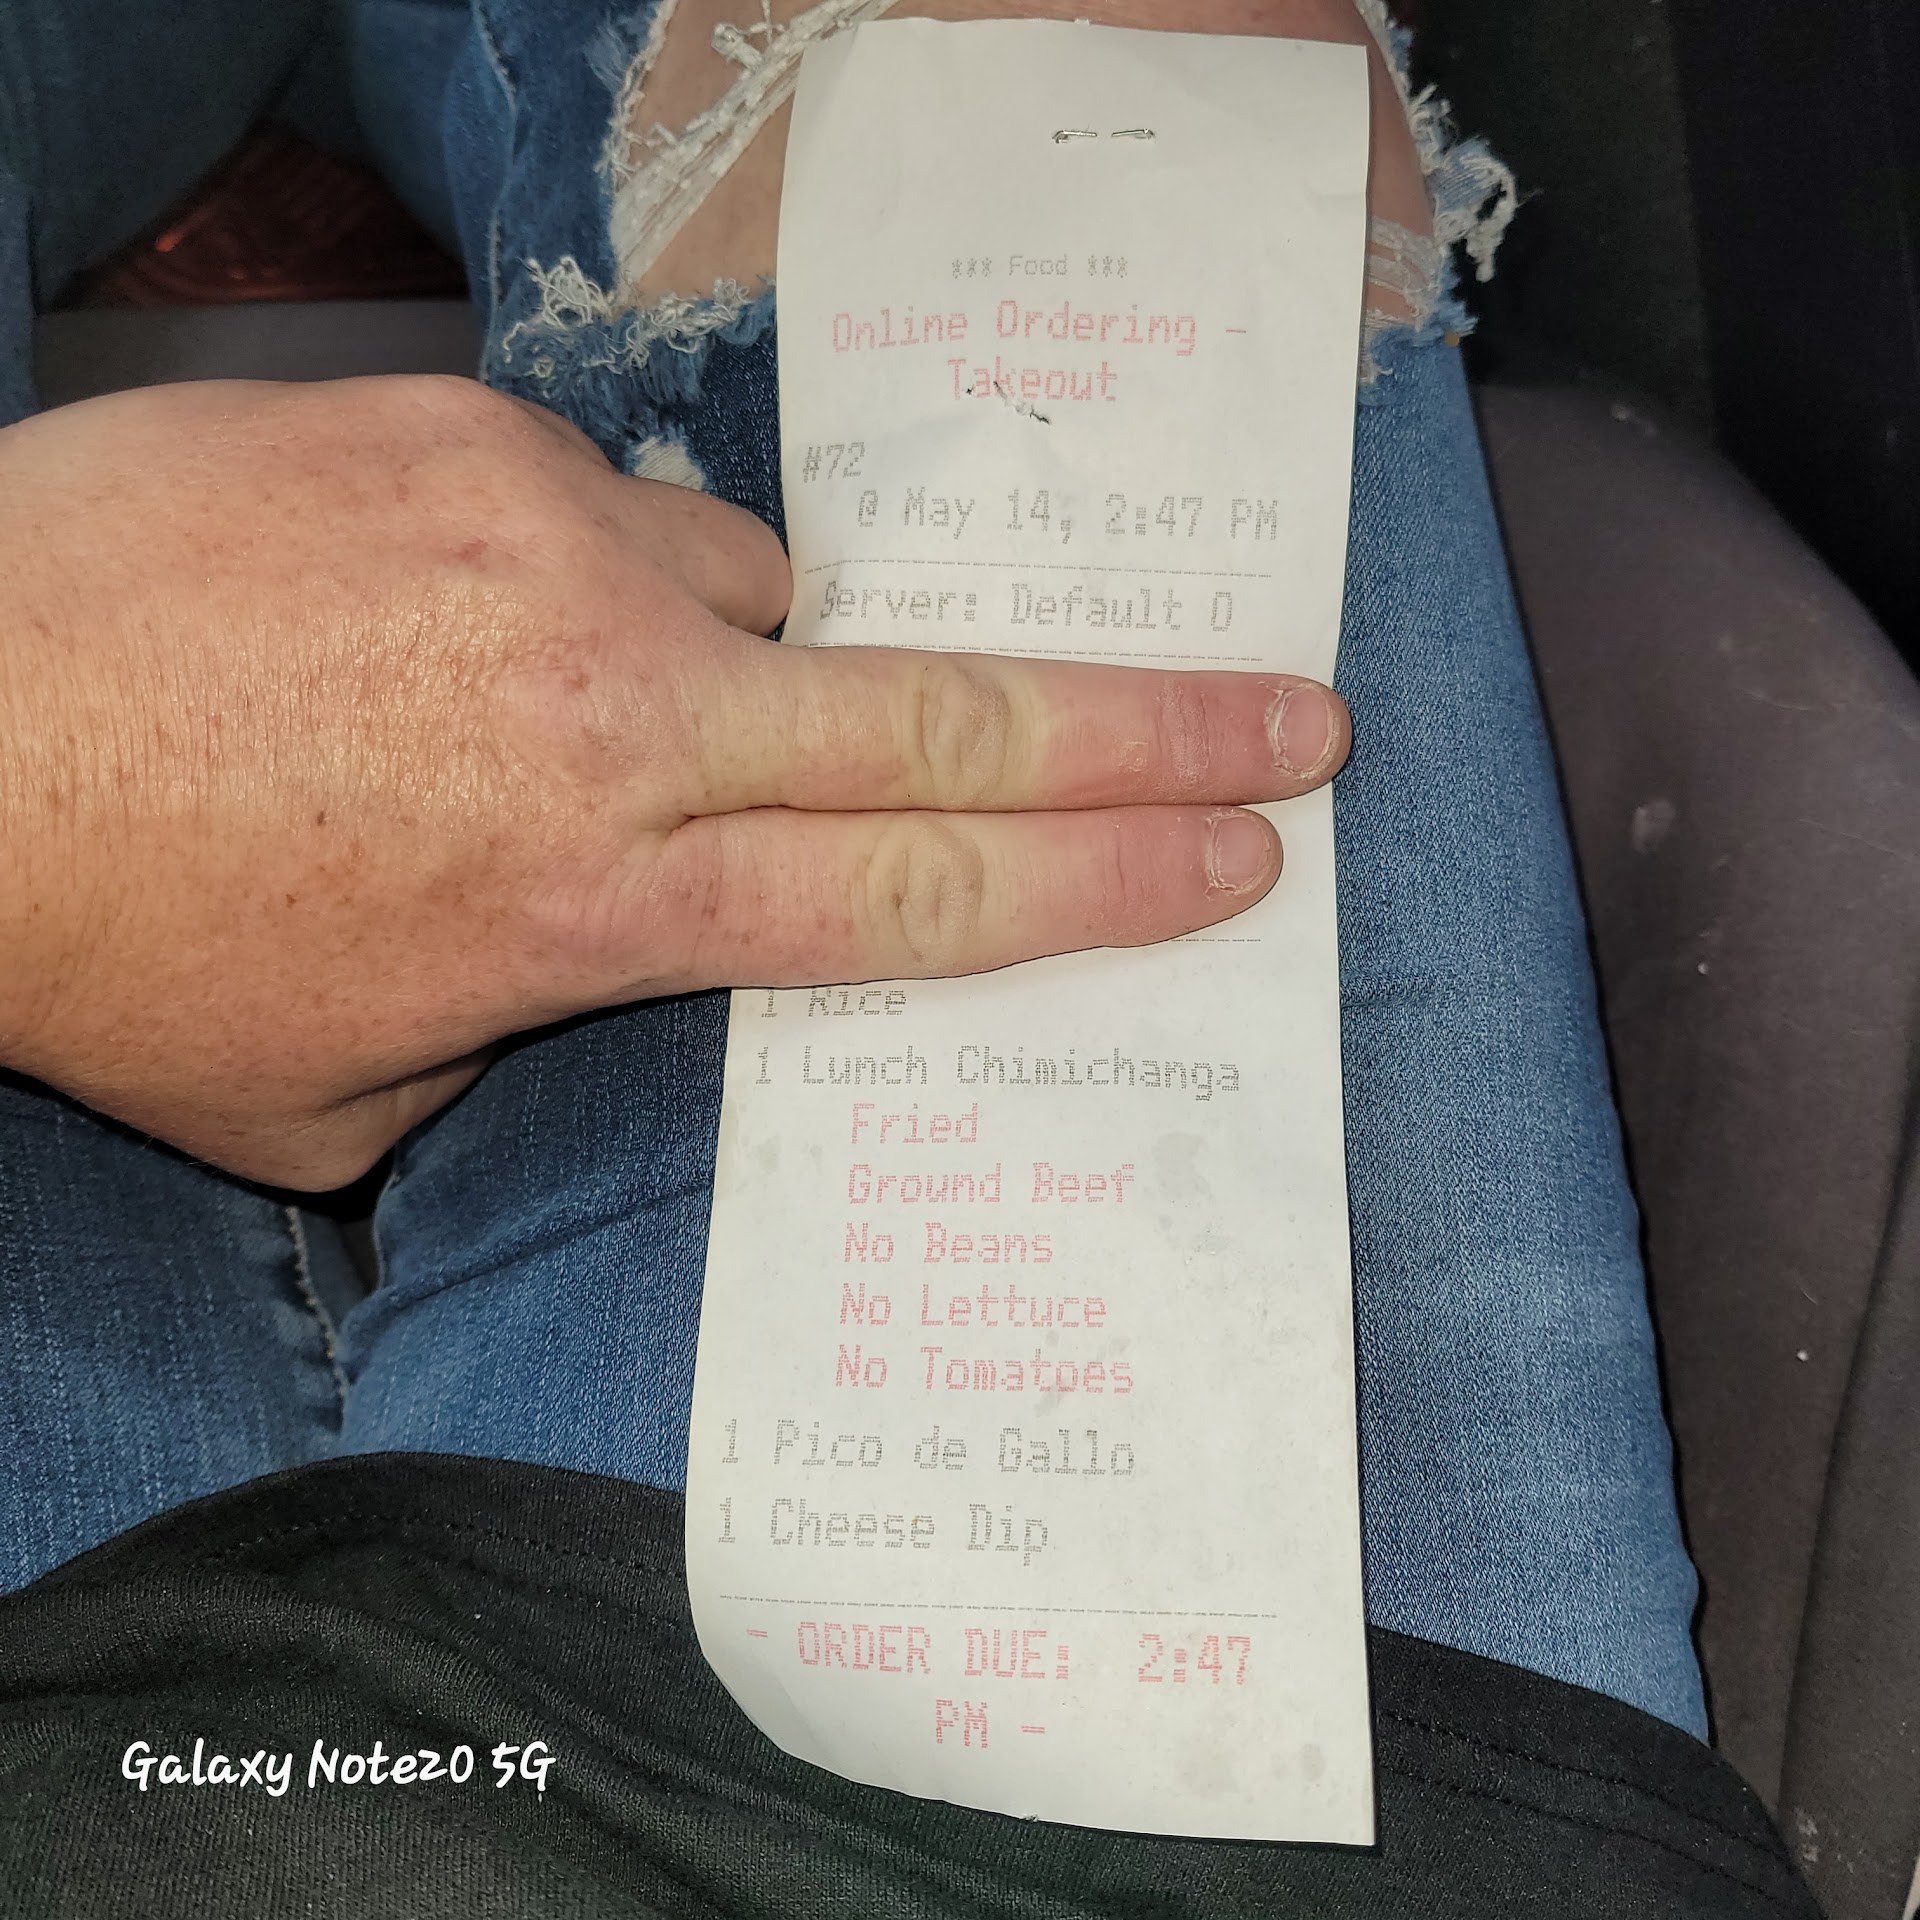 *** Food ***
Online Ordering -
Takeout
#72
@ May 14, 2:47 PM
Server: Default O
1 Rice
1 Lunch Chimichanga
Fried
Ground Beef
No Beans
No Lettuce
No Tomatoes
1 Pico de Gallo
1 Cheese Dip
- ORDER DUE: 2:47
PM -
Galaxy Note20 5G